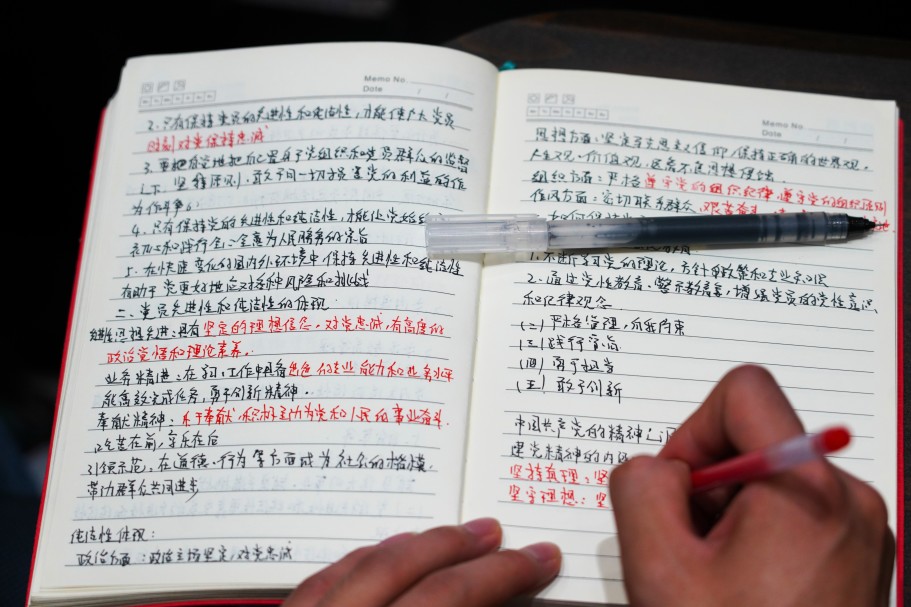 Memo No.
Date / /
2、只有保持党员的先进性和纯洁性，才能使广大党员
时刻对党保持忠诚
3、更把自觉地把自己置身于党组织和党员群众的监督
之下，坚持原则，敢于同一切损害党的利益的
行为作斗争。
4、只有保持党的先进性和纯洁性，才能让党始终
初心和践行全心全意为人民服务的宗旨
5、在快速变化的国内外环境中，保持先进性和纯洁性
有助于党更好地应对各种风险和挑战
二、党员先进性和纯洁性的体现
先进性：思想先进：具有坚定的理想信念，对党忠诚，有高度的
政治觉悟和理论素养。
业务精进：在学习、工作中具备出色的专业能力和业务水平
能高效完成任务，勇于创新精神。
奉献精神：乐于奉献，积极主动为党和人民的事业奋斗.
吃苦在前，享乐在后
引领示范，在道德、行为等方面成为社会的楷模，
带动群众共同进步
纯洁性体现：
政治方面：政治立场坚定，对党忠诚
Memo No.
Date / /
思想方面：坚定马克思主义信仰，保持正确的世界观、
人生观、价值观，远离不良思想侵蚀.
组织方面：严格遵守党的组织纪律，遵守党的组织原则
作风方面：密切联系群众，艰苦奋斗
如何保持
1、不断学习党的理论，方针和政策和专业知识
2、通过党性教育、警示教育，增强党员的党性意识
和纪律观念
(二) 严格管理，自我约束
(三) 践行宗旨
(四) 勇于担当
(五) 敢于创新
中国共产党的精神
建党精神的内
坚持真理、坚
坚守理想、坚